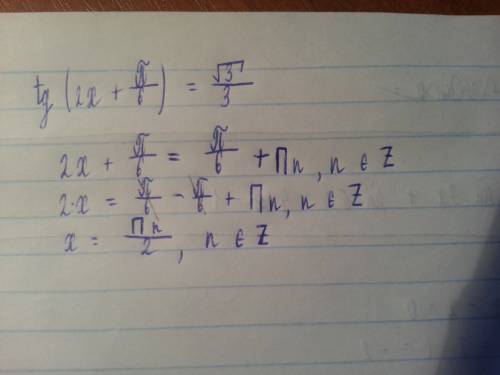 tg (2x + π/6) = √3/3
2x + π/6 = π/6 + Πn, n ∈ Z
2·x = π/6 - π/6 + Πn, n ∈ Z
x = Πn/2, n ∈ Z